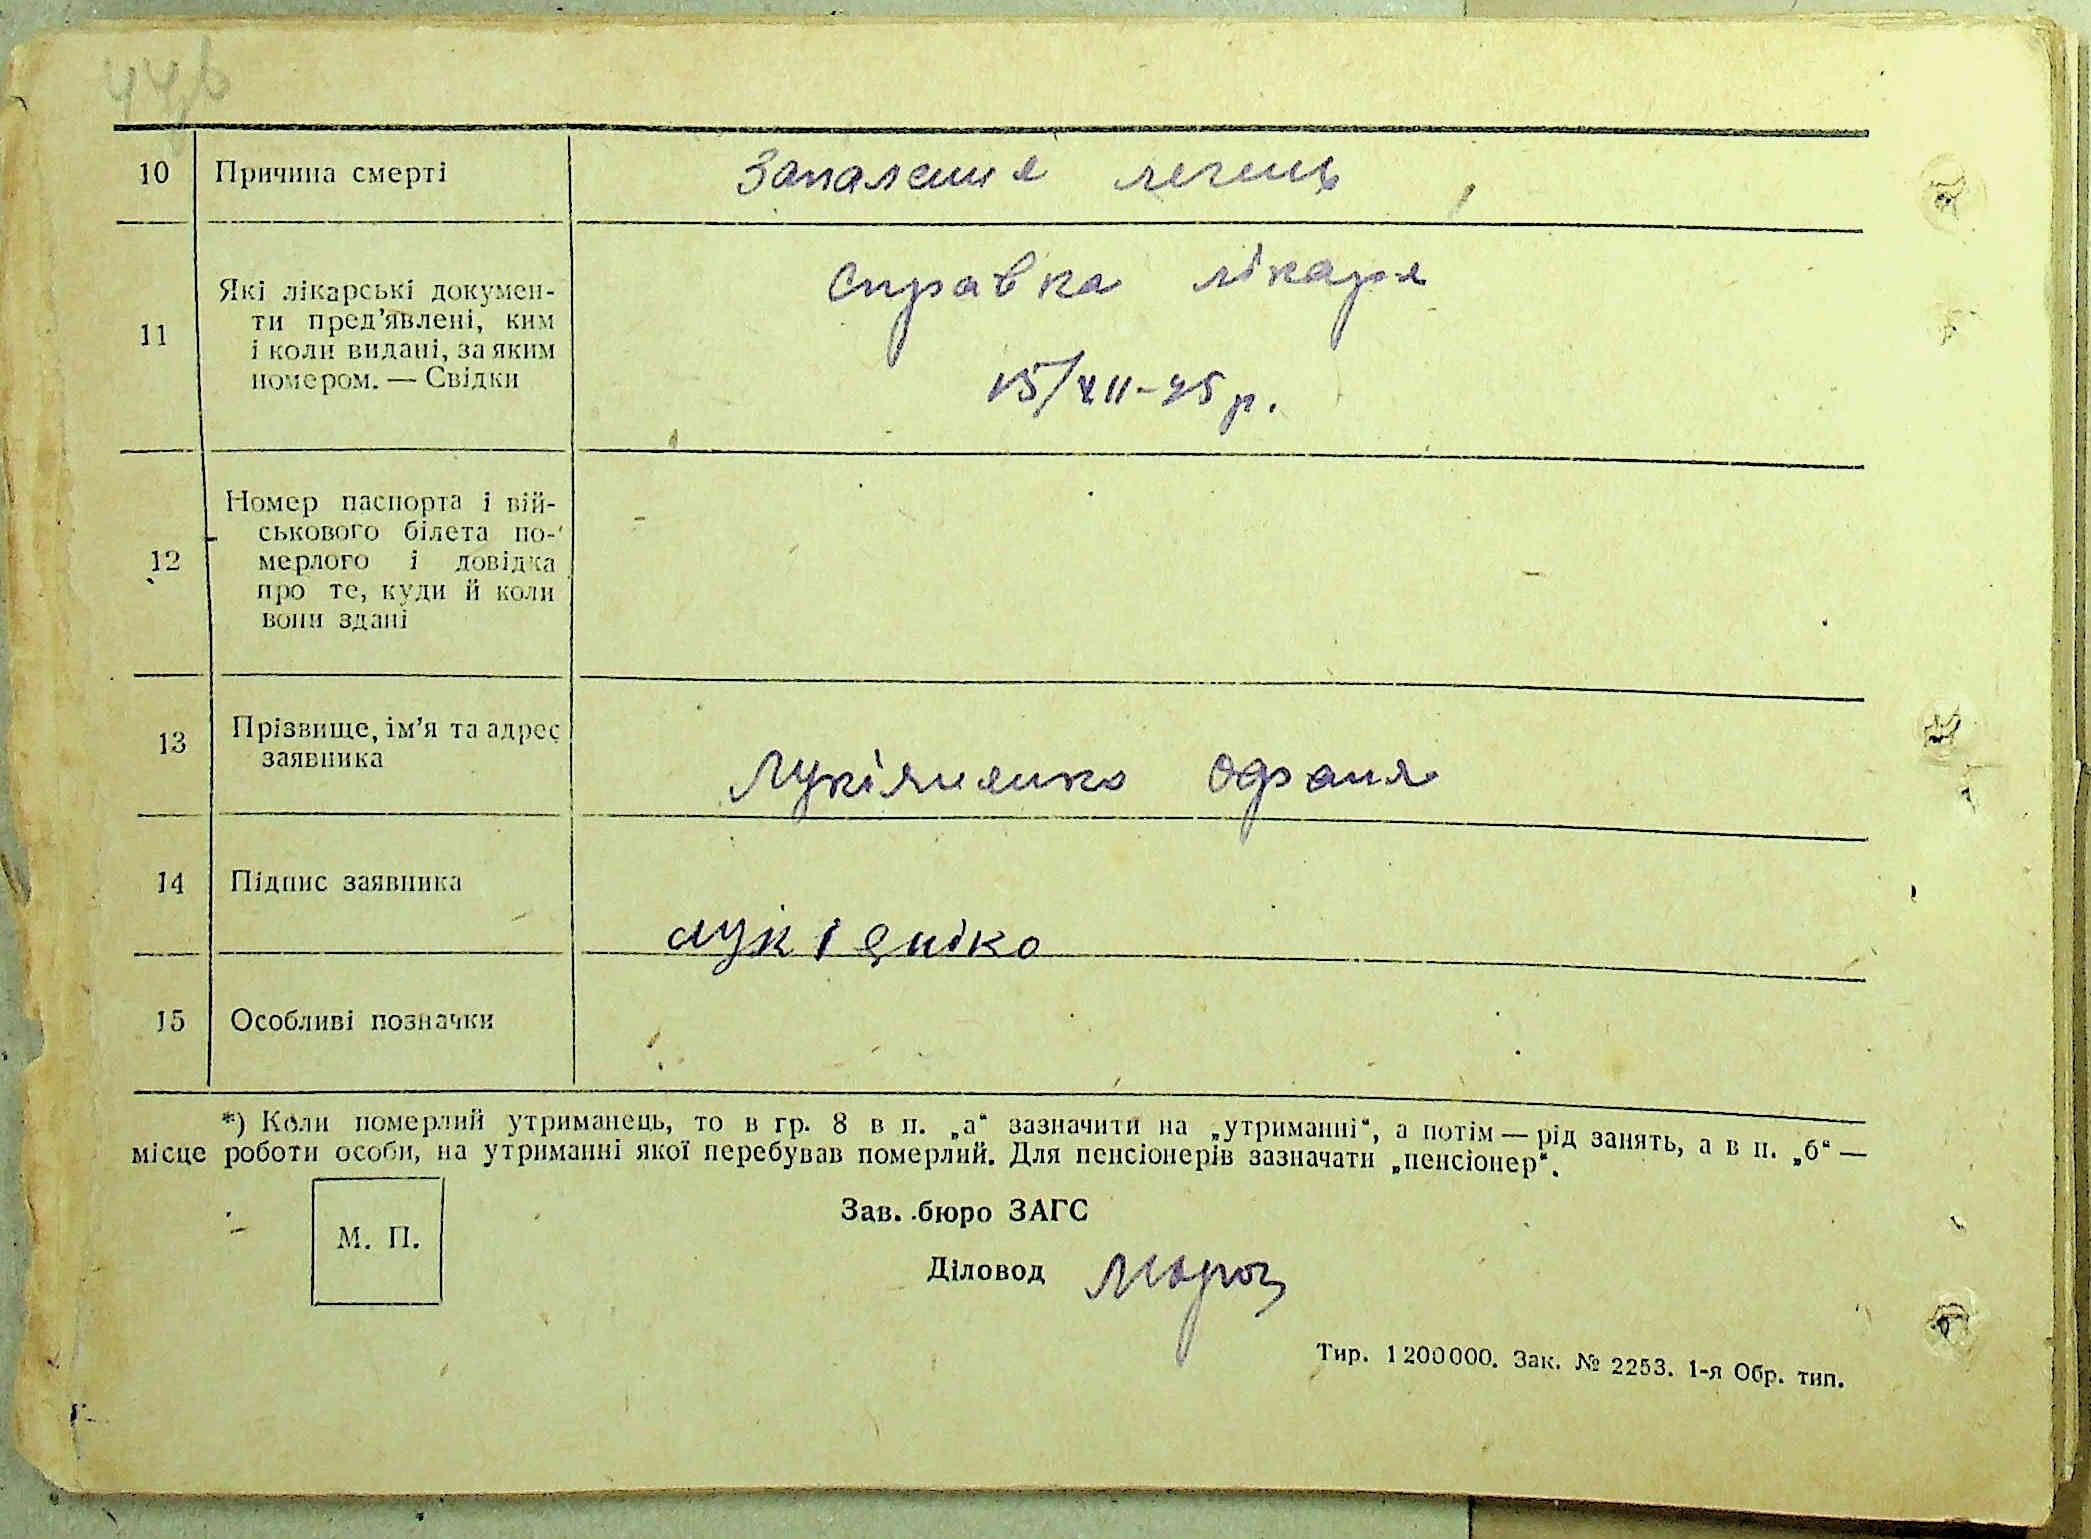 10 Причина смерті Запалення легень
11 Які лікарські докумен-
ти пред’явлені, ким
і коли видані, за яким
номером. — Свідки
Справка лікаря
15/XII-45 р.
12 Номер паспорта і вій-
ськового білета по-
мерлого і довідка
про те, куди й коли
вони здані
13 Прізвище, ім’я та адрес
заявника
Лукіяненко
14 Підпис заявника
15 Особливі позначки
*) Коли померлий утриманець, то в гр. 8 в п. „а“ зазначити на „утриманні“, а потім — рід занять, а в п. „б“ —
місце роботи особи, на утриманні якої перебував померлий. Для пенсіонерів зазначати „пенсіонер“.
М. П.
Зав. бюро ЗАГС
Діловод Мороз
Тир. 1200000. Зак. № 2253. 1-я Обр. тип.